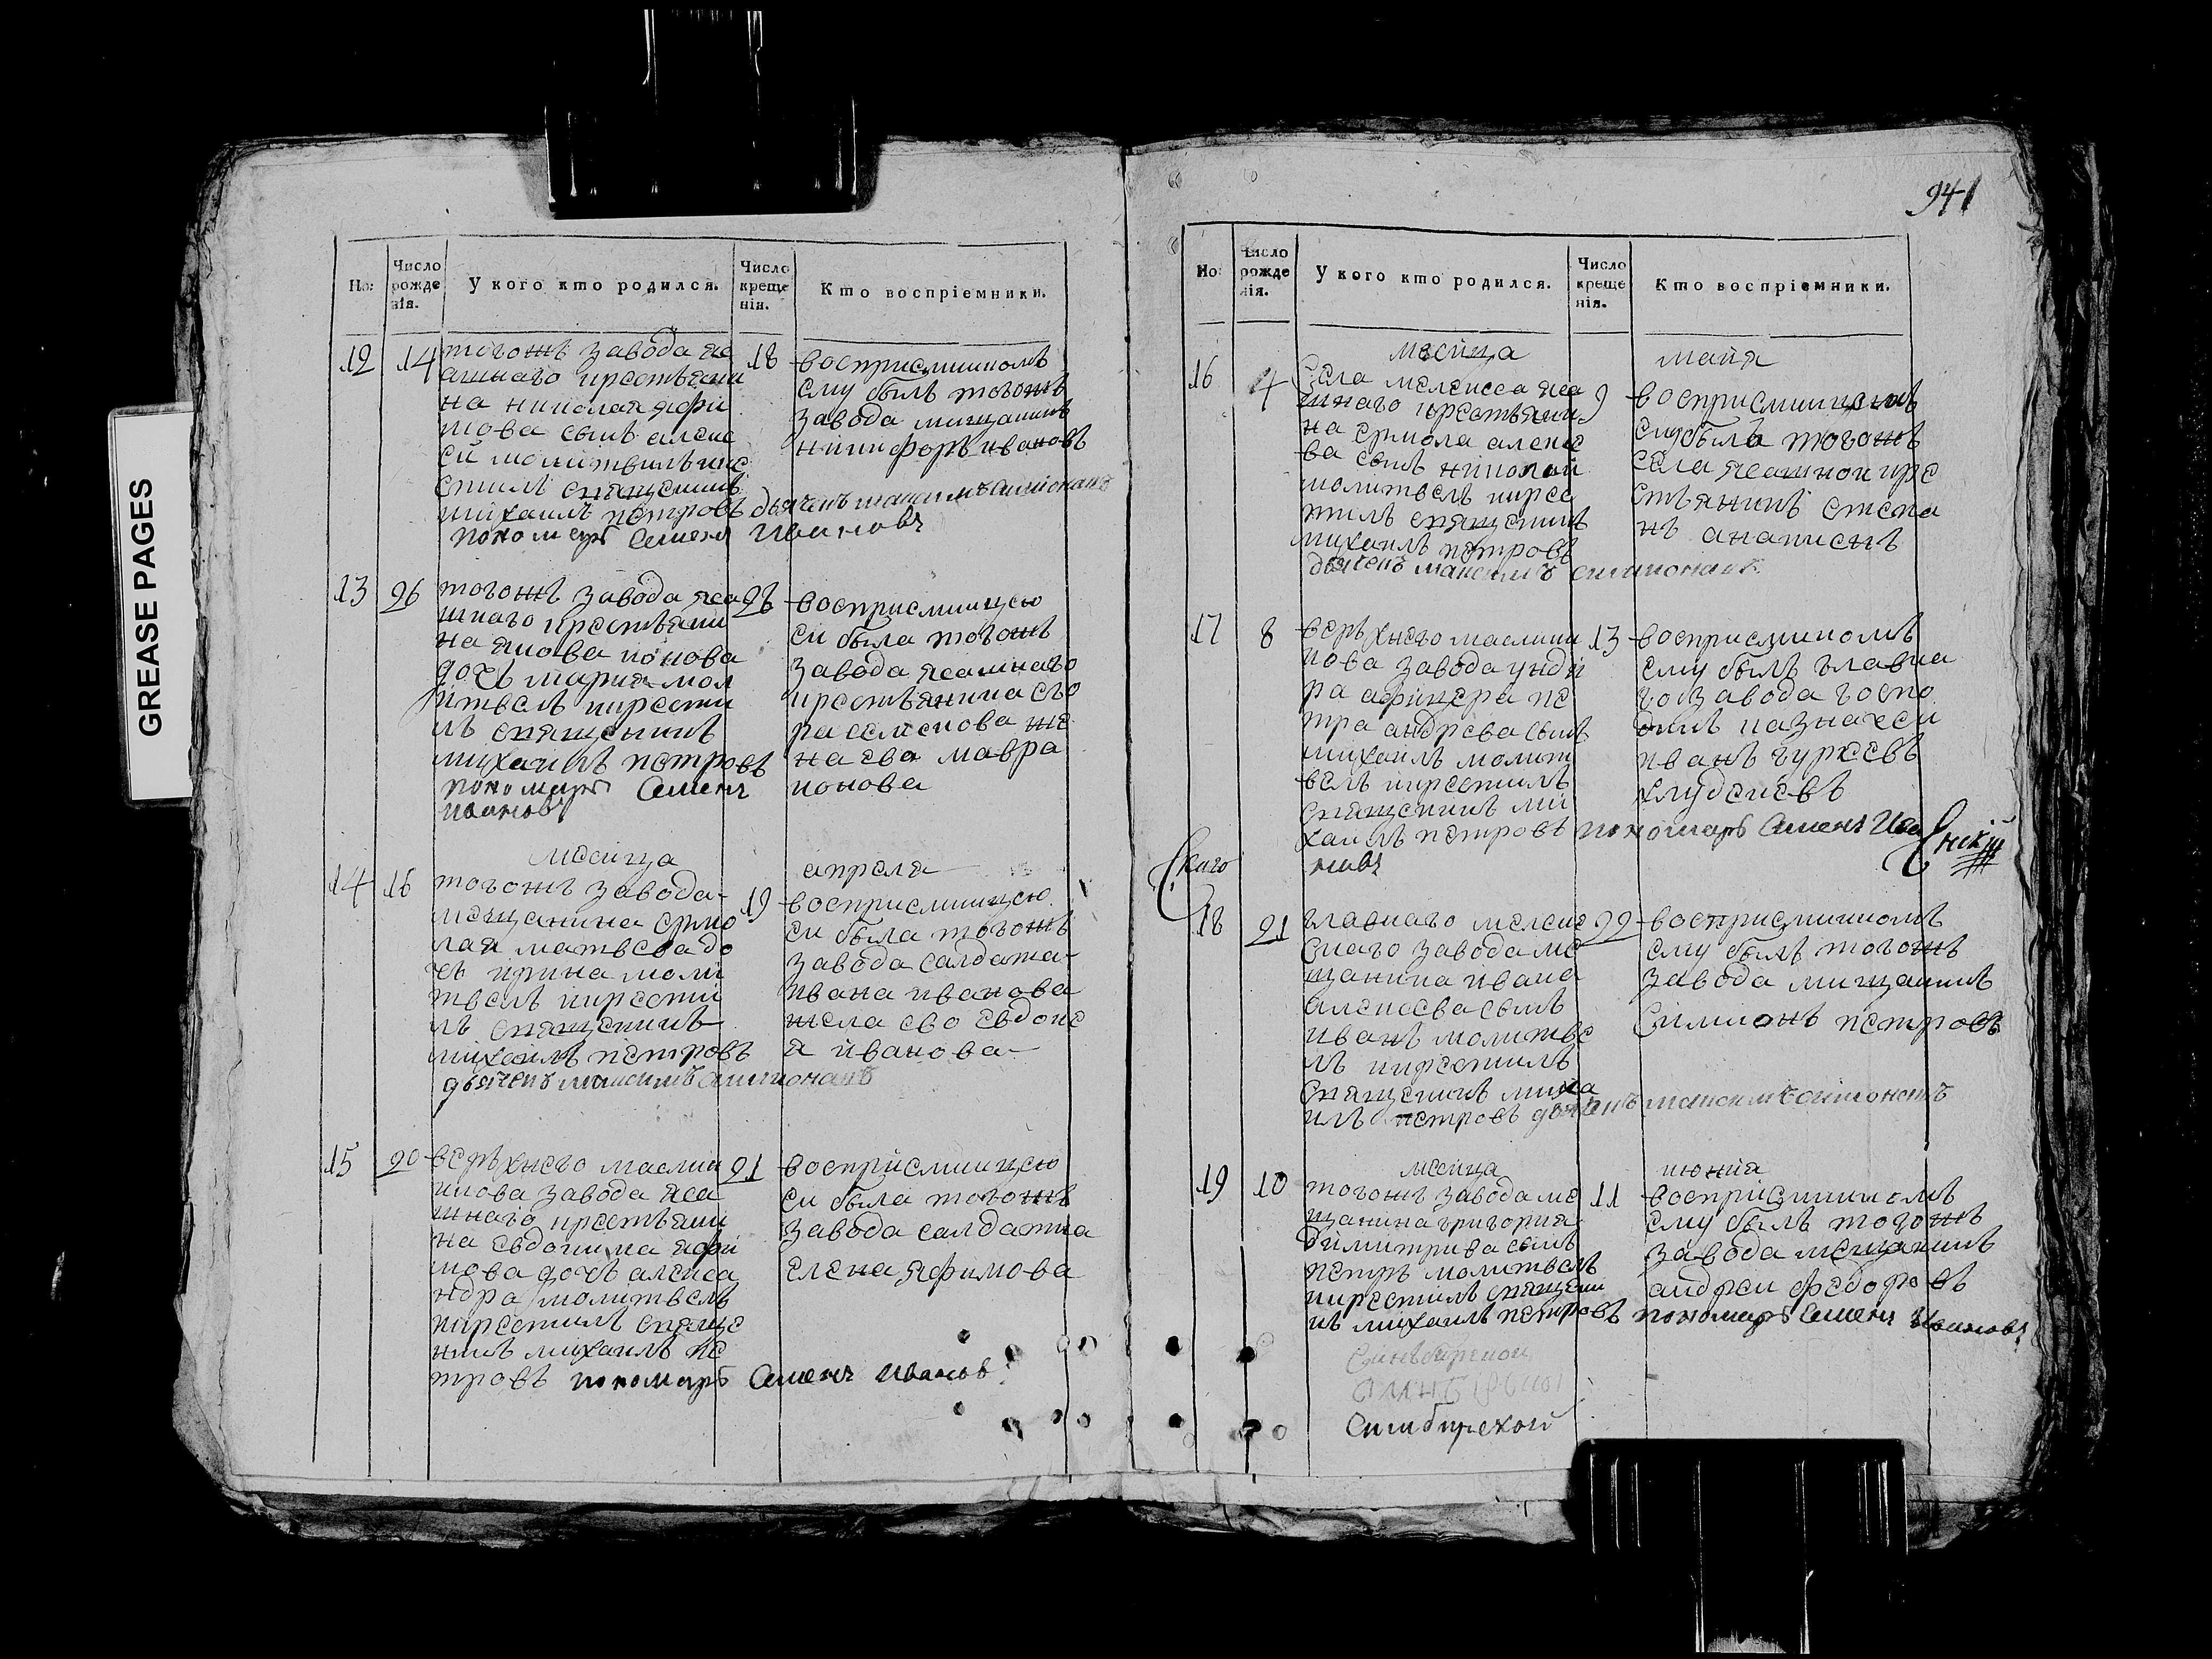 GREASE PAGES
Но:
Число рожде нія.
У кого кто родился.
Число креще нія.
Кто воспріемники.
12
14
тогожъ завода яса
шнаго крестьяни
на николая яфи
мова сынъ алек
сеи молитвилъ кре
стилъ священикъ
михаилъ петровъ дьячекъ максимъ
пономарь Семенъ Ивановъ
18
восприемникомъ
ему былъ тогожъ
завода мищанинъ
никифоръ ивановъ
13
26
тогожъ завода яса
шнаго крестьяни
на якова
дочь мария мол
итвелъ икрести
лъ священикъ
михаилъ петровъ
пономарь Семенъ
Ивановъ
28
восприемницею
еи была тогожъ
завода ясашнаго
крестьянина его
ра семенова же
на ева мавра
ионова
месяца
апреля
14
16
тогожъ завода
мещанина ермо
лая матвеева до
чь ирина моли
твелъ икрести
лъ священикъ
михаилъ петровъ
дьячекъ максимъ
19
восприемницею
еи была тогожъ
завода салдата
ивана иванова
жена ево евдоке
я иванова
15
20
верьхнего маслин
икова завода яса
шнаго крестьяни
на евдокима яфи
мова дочь алекса
ндра молитвелъ
икрестилъ свяще
никъ михаилъ пе
тровъ пономарь Семенъ Ивановъ
21
восприемницею
еи была тогожъ
завода салдатка
елена яфимова
941
Но:
Число рожде нія.
У кого кто родился.
Число креще нія.
Кто воспріемники.
месяца
майя
16
4
Села мелекеса яса
шнаго крестьяни
на ермола алекс
ва сынъ николай
молитвелъ икрес
тилъ священикъ
михаилъ петровъ
дьячекъ максимъ
9
восприемникомъ
ему былъ тогожъ
села ясашнои кре
стьянинъ степа
нъ
17
8
верьхнего маслин
икова завода унди
ра афицера пе
тра андреева сынъ
михаилъ молит
велъ икрестилъ
священикъ ми
хаилъ петровъ пономарь Семенъ Ива
новъ
13
восприемникомъ
ему былъ главна
го завода госпо
динъ казначеи
иванъ
18
21
главнаго мелеке
снаго завода ме
щанина ивана
алексеева сынъ
иванъ молитве
лъ икрестилъ
священикъ миха
илъ петровъ дьячекъ максимъ
22
восприемникомъ
ему былъ тогожъ
завода мищанинъ
Симионъ петровъ
месяца
июния
19
10
тогожъ завода ме
щанина григория
димитрива сынъ
петръ молитвелъ
икрестилъ священи
къ михаилъ петровъ пономарь Семенъ Ивановъ
11
восприемникомъ
ему былъ тогожъ
завода мещанинъ
андреи федоровъ
Симбирскои